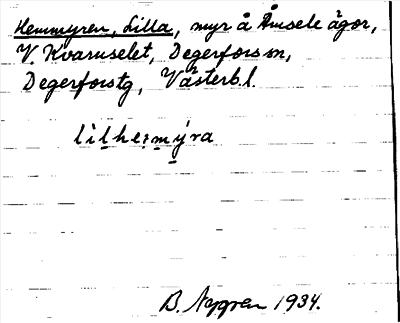 Hemmyren, Lilla, myr å Åmsele ägor,
V. Kvarnselet, Degerfors sn,
Degerforstg, Västerb.l.
lìlhe:mýra
B. Nygren 1934.